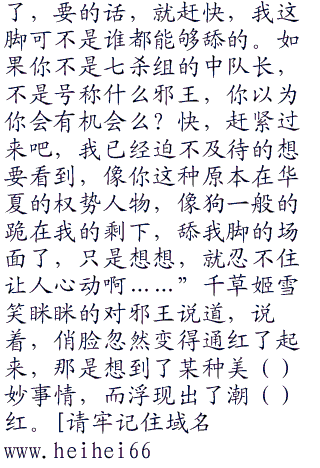 了，要的话，就赶快，我这
脚可不是谁都能够舔的。如
果你不是七杀组的中队长，
不是号称什么邪王，你以为
你会有机会么？快，赶紧过
来吧，我已经迫不及待的想
要看到，像你这种原本在华
夏的权势人物，像狗一般的
跪在我的剩下，舔我脚的场
面了，只是想想，就忍不住
让人心动啊……”千草姬雪
笑眯眯的对邪王说道，说
着，俏脸忽然变得通红了起
来，那是想到了某种美（）
妙事情，而浮现出了潮（）
红。[请牢记住域名
www.heihei66